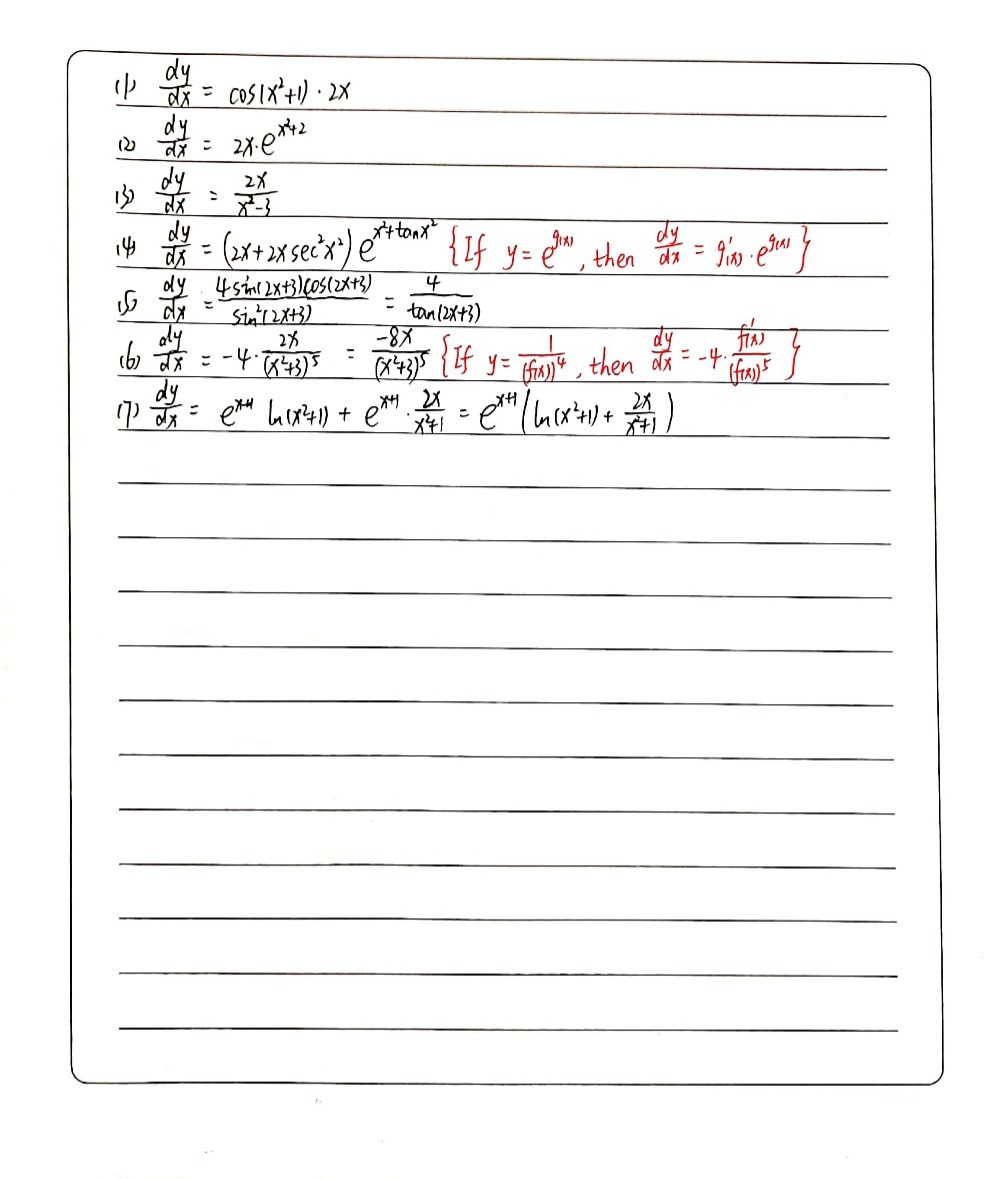 (1) dy/dx = cos(x²+1) · 2x
(2) dy/dx = 2x·e^(x²+2)
(3) dy/dx = 2x/(x²-3)
(4) dy/dx = (2x+2x sec²x²) e^(x²+tanx²) {If y = e^(g(x)), then dy/dx = g'(x) · e^(g(x))}
(5) dy/dx = 4sin(2x+3)cos(2x+3)/sin²(2x+3) = 4/tan(2x+3)
(6) dy/dx = -4 · 2x/(x²+3)⁵ = -8x/(x²+3)⁵ {If y = 1/(f(x))⁴, then dy/dx = -4 · f'(x)/(f(x))⁵}
(7) dy/dx = e^(x+1) ln(x²+1) + e^(x+1) · 2x/(x²+1) = e^(x+1) (ln(x²+1) + 2x/(x²+1))